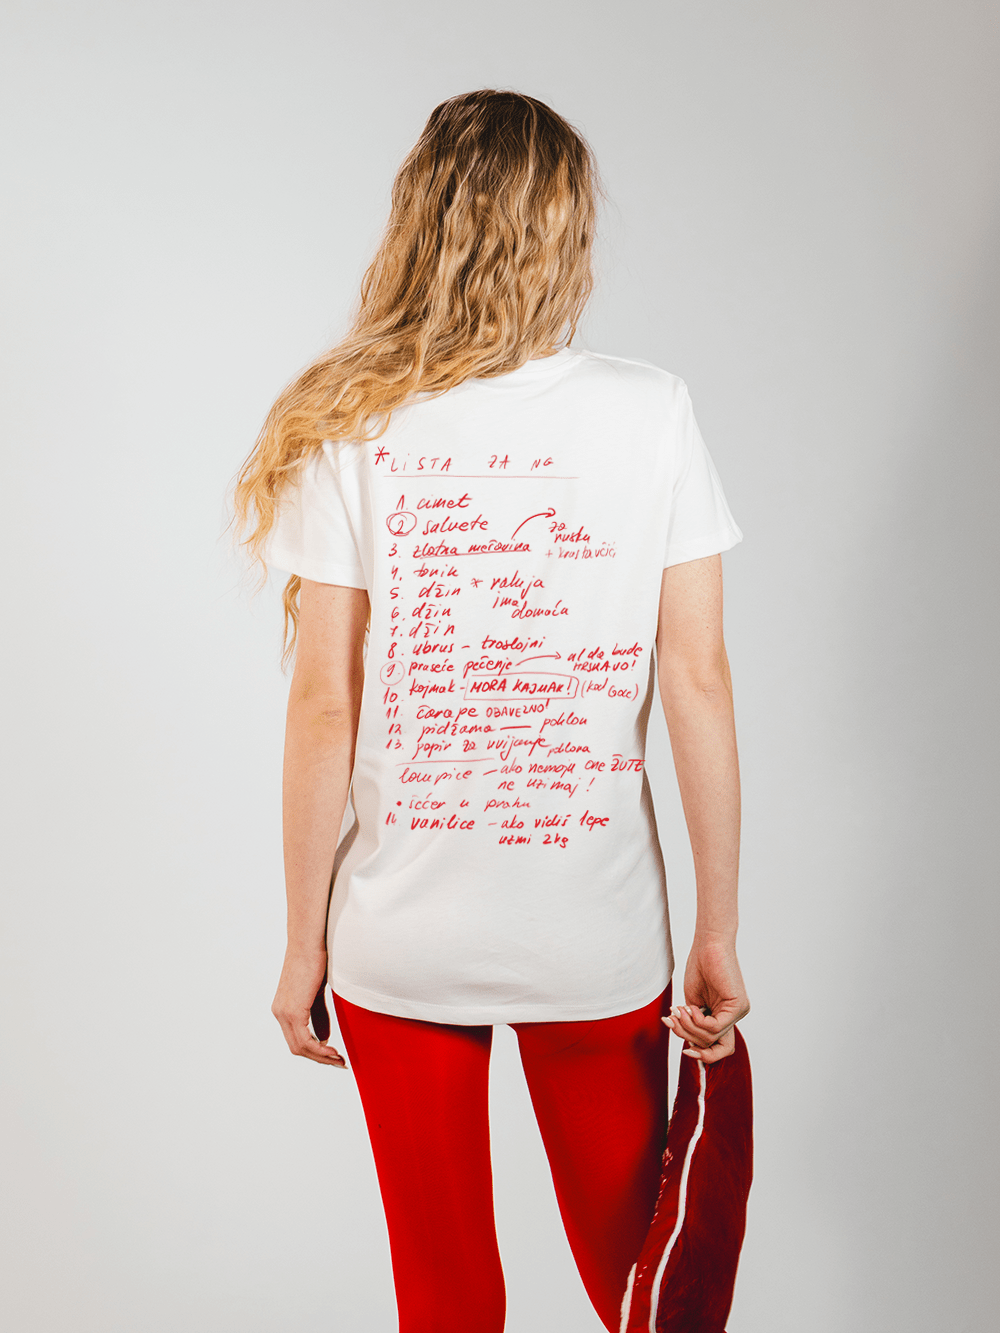 *LiSTA ZA NG
1. cimet
2 salvete
3. zlotna mečovina → za rusku + krastavčići
4. tonik
5. džin * rakija ima domaća
6. džin
7. džin
8. ubrus - troslojni
9. praseće pečenje → al da bude HRSKAVO!
10. kajmak - MORA KAJMAK! (kod Goce)
11. čarape OBAVEZNO!
12. pidžama — poklon
13. papir za uvijanje poklona
lompice - ako nemaju one ŽUTE
ne uzimaj!
• šećer u prahu
14 vanilice - ako vidiš lepe
uzmi 2kg